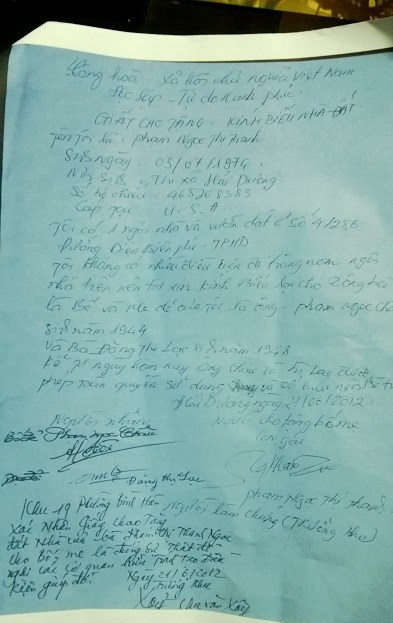 Cộng hoà xã hội chủ nghĩa Việt Nam
Độc lập - Tự do Hạnh phúc
GIẤY CHO TẶNG - KÍNH BIẾU NHÀ ĐẤT
Tên tôi là: phạm Ngọc Thị Thanh
Sinh ngày: 03/07/1974.
Nơi sinh: Thị xã Hải Dương
Số hộ chiếu: 465708383
Cấp tại: U-S.A
Tôi có 1 ngôi nhà và vườn đất ở số 4/286
Đường Điện Biên phủ - TPHD
Tôi không có nhiều điều kiện để trông nom ngôi
nhà trên nên tôi xin kính biếu lại cho
Là Bố và Mẹ đẻ của tôi là ông - phạm Ngọc
Sinh năm 1944
Và Bà Đặng Thị Lạc sinh năm 1948
Kể từ ngày hôm nay ông và bà Lạc được
phép toàn quyền sử dụng và sở hữu
Hải Dương ngày 21/06/2012.
Người nhận
Người cho tặng bố mẹ
Con gái
Phạm Ngọc
Đặng Thị Lạc
phạm Ngọc Thị Thanh
Người làm chứng (Trưởng khu)
Khu 19 Phường Bình Hàn
Xác Nhận Giấy Trao Tặng
đất Nhà của Thanh Ngọc
cho Bố, mẹ là đúng sự thật đề
nghị các cơ quan tạo điều
kiện giúp đỡ.
Ngày 21/6/2012
Trưởng khu